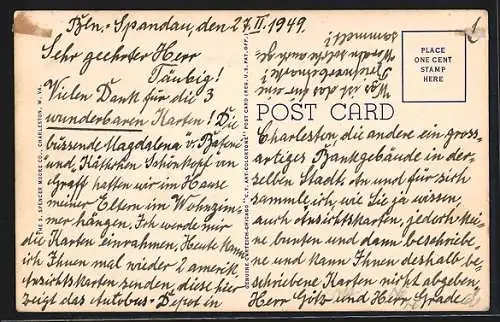 Bln.-Spandau, den 27.II.1949.
Sehr geehrter Herr
Täubig!
Vielen Dank für die 3
wunderbaren Karten! Die
büssende Magdalena v. Batoni
und Käthchen Schönkopf im
Graff hatten wir im Hause
meiner Eltern im Wohnzim-
mer hängen. Ich werde mir
die Karten einrahmen. Heute kann
ich Ihnen mal wieder 2 amerik.
Ansichtskarten senden, diese hier
zeigt das Autobus-Depot in
THE S. SPENCER MOORE CO., CHARLESTON, W. VA.
GENUINE CURTEICH-CHICAGO "C.T. ART-COLORTONE" POST CARD (REG. U.S. PAT. OFF.)
POST CARD
PLACE
ONE CENT
STAMP
HERE
Charleston die andere ein gross-
artiges Bankgebäude in der-
selben Stadt. An und für sich
sammle ich, wie Sie ja wissen,
auch Ansichtskarten, jedoch kei-
ne bunten und dann beschriebe-
ne und kann Ihnen deshalb be-
schriebene Karten nicht abgeben
Herr Götz und Herr Grade